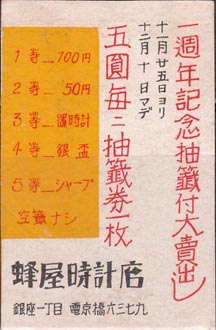 一週年記念抽籤付大賣出し
十一月廿五日ヨリ
十二月十日マデ
五圓毎ニ抽籤券一枚
1等—100円
2等—50円
3等—置時計
4等—銀盃
5等—シャープ
空籤ナシ
蜂屋時計店
銀座一丁目 電京橋六三七九